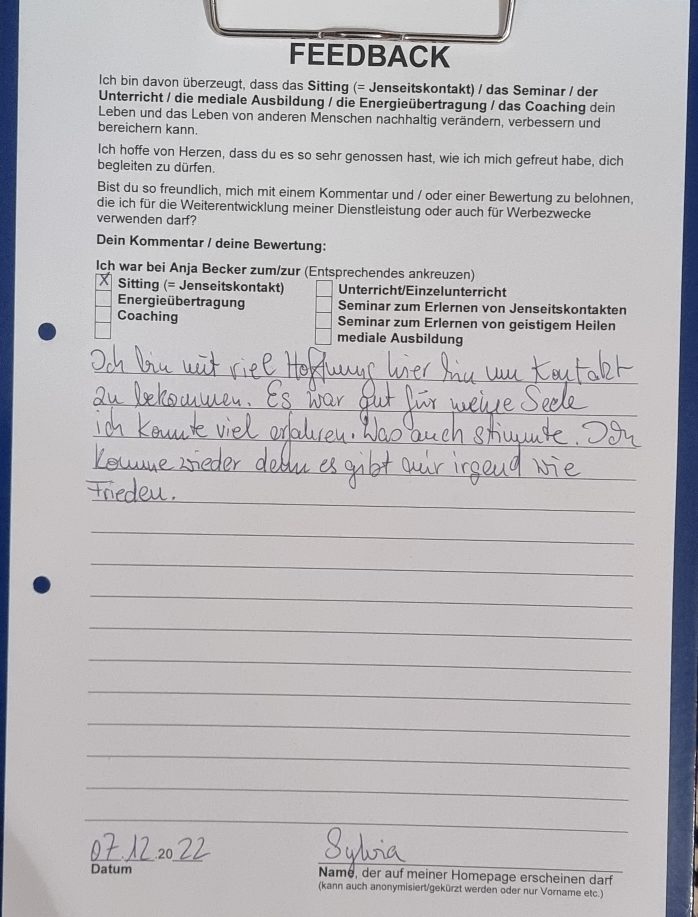 FEEDBACK
Ich bin davon überzeugt, dass das Sitting (= Jenseitskontakt) / das Seminar / der
Unterricht / die mediale Ausbildung / die Energieübertragung / das Coaching dein
Leben und das Leben von anderen Menschen nachhaltig verändern, verbessern und
bereichern kann.
Ich hoffe von Herzen, dass du es so sehr genossen hast, wie ich mich gefreut habe, dich
begleiten zu dürfen.
Bist du so freundlich, mich mit einem Kommentar und / oder einer Bewertung zu belohnen,
die ich für die Weiterentwicklung meiner Dienstleistung oder auch für Werbezwecke
verwenden darf?
Dein Kommentar / deine Bewertung:
Ich war bei Anja Becker zum/zur (Entsprechendes ankreuzen)
X Sitting (= Jenseitskontakt)
Energieübertragung
Coaching
Unterricht/Einzelunterricht
Seminar zum Erlernen von Jenseitskontakten
Seminar zum Erlernen von geistigem Heilen
mediale Ausbildung
Ich bin mit viel Hoffnung hier hin um Kontakt
zu bekommen. Es war gut für meine Seele
ich konnte viel erfahren. Was auch stimmte. Ich
komme wieder denn es gibt mir irgend wie
Frieden.
07.12.2022
Datum
Sylvia
Name, der auf meiner Homepage erscheinen darf
(kann auch anonymisiert/gekürzt werden oder nur Vorname etc.)